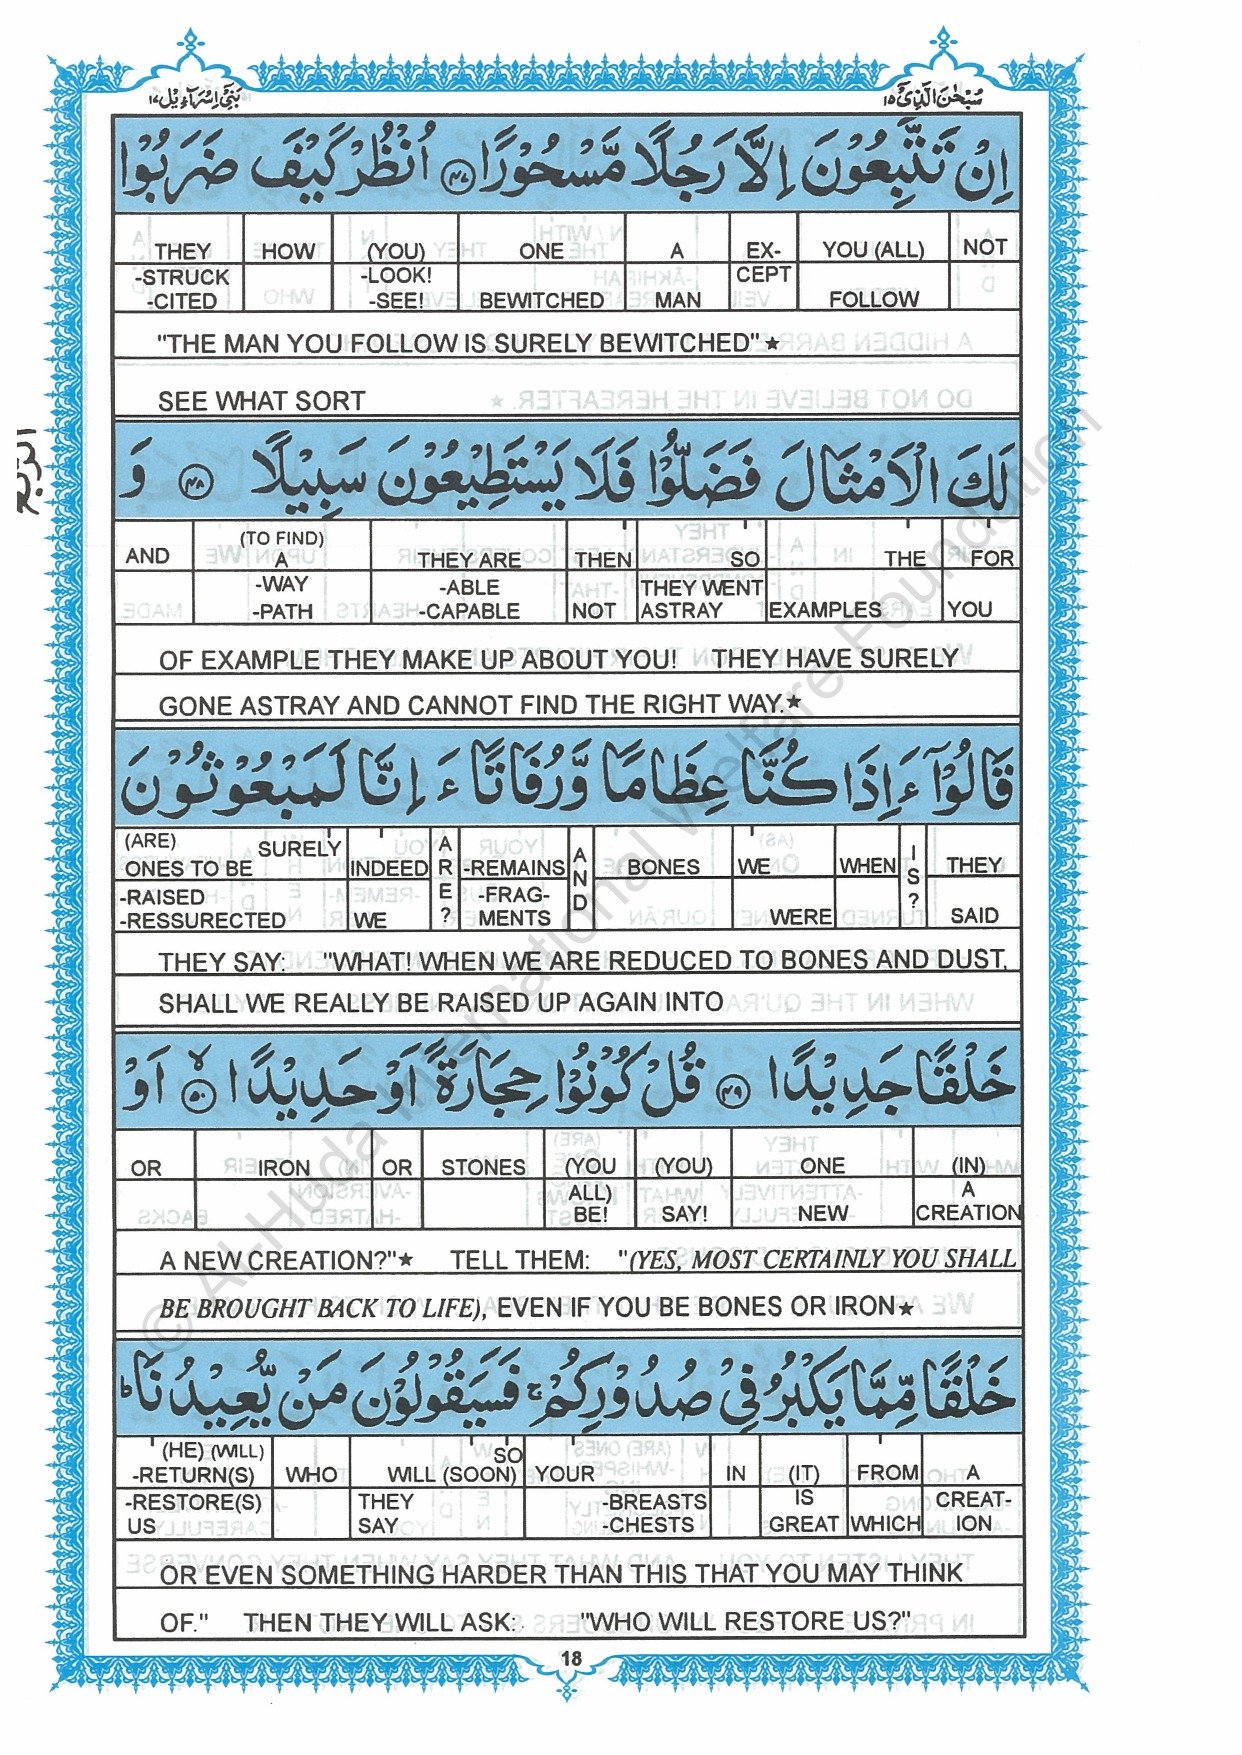 بَنِیْۤ اِسْرَآءِیْل ١٧
سُبْحٰنَ الَّذِیْۤ ١٥
اِنْ تَتَّبِعُوْنَ اِلَّا رَجُلًا مَّسْحُوْرًا ﴿٤٧﴾ اُنْظُرْ كَیْفَ ضَرَبُوْا
THEY HOW (YOU) ONE A EX- YOU (ALL) NOT
-STRUCK -LOOK! CEPT
-CITED -SEE! BEWITCHED MAN FOLLOW
"THE MAN YOU FOLLOW IS SURELY BEWITCHED"★
SEE WHAT SORT
لَكَ الْاَمْثَالَ فَضَلُّوْا فَلَا یَسْتَطِیْعُوْنَ سَبِیْلًا ﴿٤٨﴾ وَ
(TO FIND)
AND A THEY ARE THEN SO THE FOR
-WAY -ABLE THEY WENT
-PATH -CAPABLE NOT ASTRAY EXAMPLES YOU
OF EXAMPLE THEY MAKE UP ABOUT YOU! THEY HAVE SURELY
GONE ASTRAY AND CANNOT FIND THE RIGHT WAY.★
قَالُوْۤا ءَاِذَا كُنَّا عِظَامًا وَّرُفَاتًا ءَاِنَّا لَمَبْعُوْثُوْنَ
(ARE) SURELY
ONES TO BE INDEED ARE? -REMAINS AND BONES WE WHEN IS? THEY
-RAISED -FRAG-
-RESSURECTED WE MENTS WERE SAID
THEY SAY: "WHAT! WHEN WE ARE REDUCED TO BONES AND DUST,
SHALL WE REALLY BE RAISED UP AGAIN INTO
خَلْقًا جَدِیْدًا ﴿٤٩﴾ قُلْ كُوْنُوْا حِجَارَةً اَوْ حَدِیْدًا ﴿٥٠﴾ۙ اَوْ
OR IRON OR STONES (YOU (YOU) ONE (IN)
ALL) A
BE! SAY! NEW CREATION
A NEW CREATION?"★ TELL THEM: "(YES, MOST CERTAINLY YOU SHALL
BE BROUGHT BACK TO LIFE), EVEN IF YOU BE BONES OR IRON★
خَلْقًا مِّمَّا یَكْبُرُ فِیْ صُدُوْرِكُمْ ۚ فَسَیَقُوْلُوْنَ مَنْ یُّعِیْدُنَا ؕ
(HE) (WILL) SO
-RETURN(S) WHO WILL (SOON) YOUR IN (IT) FROM A
-RESTORE(S) THEY -BREASTS IS CREAT-
US SAY -CHESTS GREAT WHICH ION
OR EVEN SOMETHING HARDER THAN THIS THAT YOU MAY THINK
OF." THEN THEY WILL ASK: "WHO WILL RESTORE US?"
18
© Al-Huda International Welfare Foundation